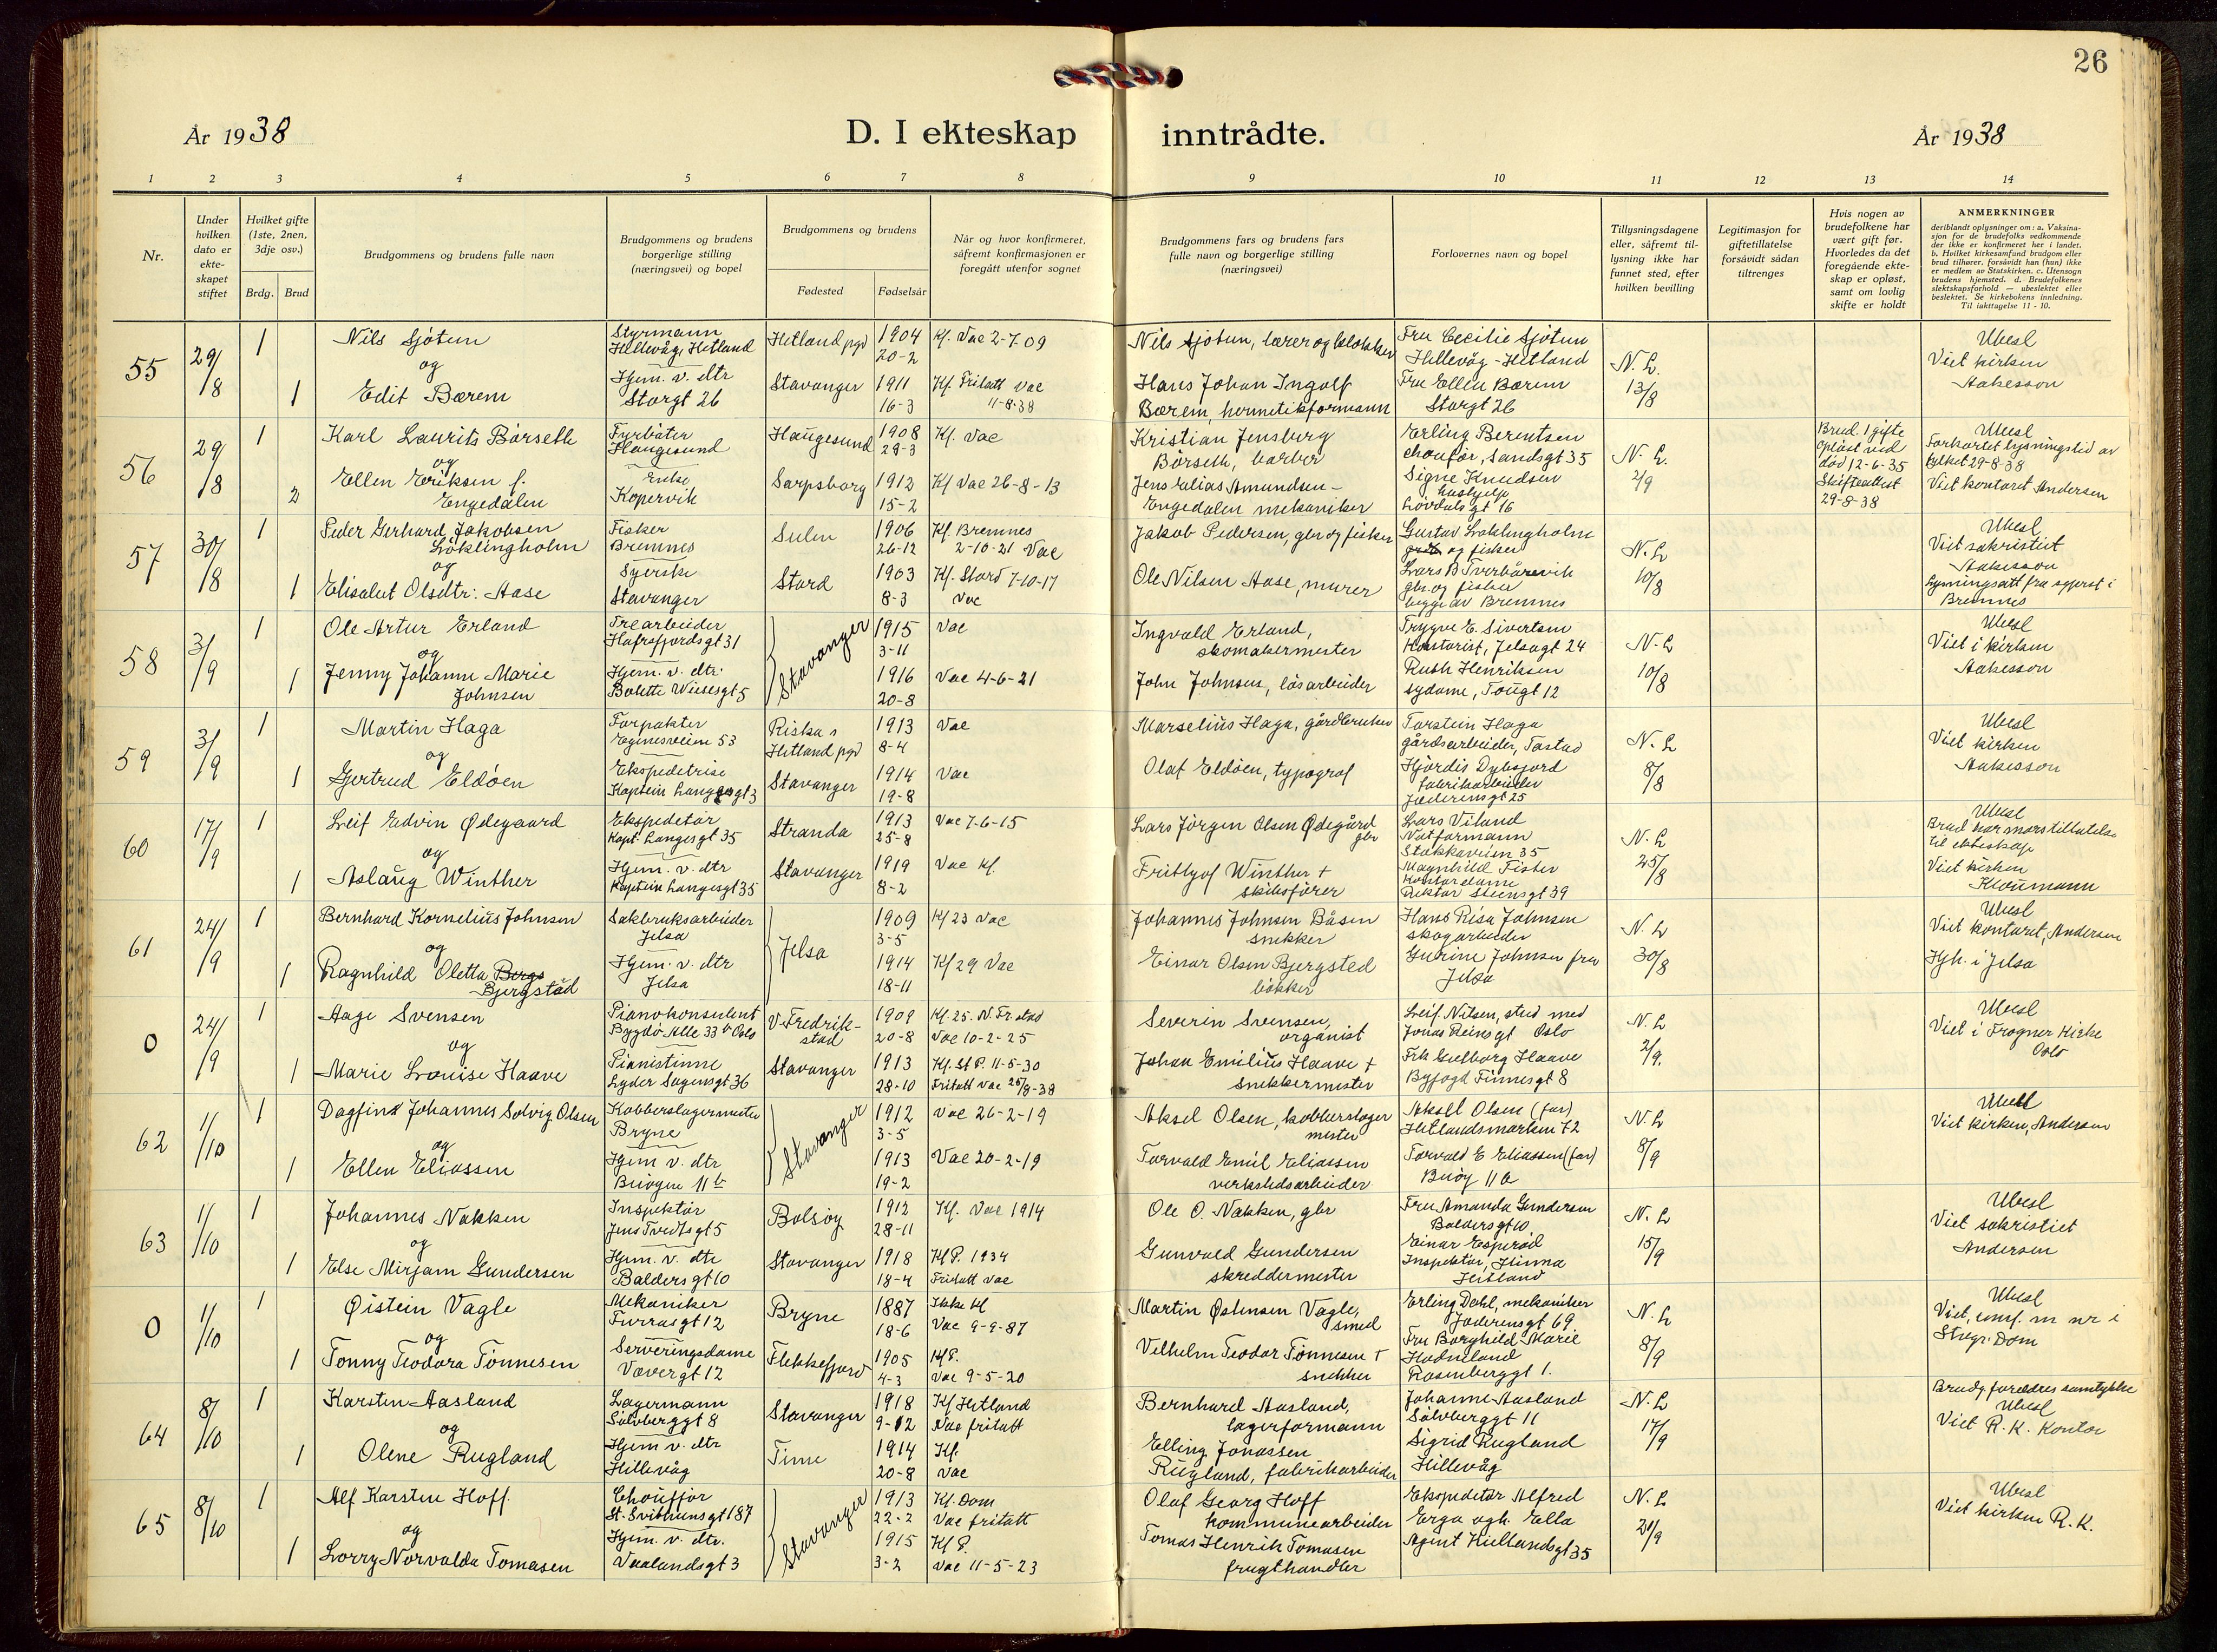 26
År 1938
D. I ekteskap inntrådte.
År 1938
1 2 3 4 5 6 7 8 9 10 11 12 13 14
Nr.
Under hvilken dato er ekteskapet stiftet
Hvilket gifte (1ste, 2nen, 3dje osv.)
Brdg. Brud
Brudgommens og brudens fulle navn
Brudgommens og brudens borgerlige stilling (næringsvei) og bopel
Brudgommens og brudens
Fødested Fødselsår
Når og hvor konfirmeret, såfremt konfirmasjonen er foregått utenfor sognet
Brudgommens fars og brudens fars fulle navn og borgerlige stilling (næringsvei)
Forlovernes navn og bopel
Tillysningsdagene eller, såfremt tillysning ikke har funnet sted, efter hvilken bevilling
Legitimasjon for giftetillatelse forsåvidt sådan tiltrenges
Hvis nogen av brudefolkene har vært gift før. Hvorledes da det foregående ekteskap er opløst, samt om lovlig skifte er holdt
ANMERKNINGER
deriblandt oplysninger om: a. Vaksinasjon for de brudefolks vedkommende der ikke er konfirmeret her i landet. b. Hvilket kirkesamfund brudgom eller brud tilhører, forsåvidt han (hun) ikke er medlem av Statskirken. c. Utensogn brudens hjemsted. d. Brudefolkenes slektskapsforhold — ubeslektet eller beslektet. Se kirkebokens innledning. Til iakttagelse 11 - 10.
55
29/8
1
Nils Sjötun
Styrmann
Hillevåg, Hetland
Hetland pgd
1904
20-2
Kf. Vac 2-7-09
Nils Sjötun, lærer og klokker
Fru Cecilie Sjötun
Hillevåg - Hetland
og
1
Edit Bærem
Hjem. v. dtr
Storgt 26
Stavanger
1911
16-3
Kf. Fritatt vac
11-8-38
Hans Johan Ingolf
Bærem, hermetikformann
Fru Ellen Bærem
Storgt 26
N. L.
13/8
Ubesl
Viet kirken
Aakesson
56
29/8
1
Karl Laurits Börseth
Fyrböter
Haugesund
Haugesund
1908
29-3
Kf. Vac
Kristian Jensberg
Börseth, barber
Erling Berentsen
choufør, Sandsgt 35
og
2
Ellen Eriksen f.
Engedalen
Enke
Kopervik
Sarpsborg
1912
15-2
Kf Vac 26-8-13
Jens Elias Amundsen -
Engedalen mekaniker
Signe Knudsen
hushjelp
Lövdals gt 16
N. L.
2/9
Brud. 1 gifte
opløst ved
død 12-6-35
Skifteattest
29-8-38
Ubesl
Forkortet lysningstid av
fylket 29-8-38
Viet kontoret Andersen
57
30/8
1
Peder Gerhard Jakobsen
Löklingholm
Fisker
Bremnes
1906
26-12
Kf. Bremnes
2-10-21 Vac
Jakob Pedersen, gbr og fisker
Gustav Löklingholm
og fisker
og
1
Elisabet Olsdtr. Aase
Syerske
Stavanger
Stord
1903
8-3
Kf. Stord 7-10-17
Vac
Ole Nilsen Aase, murer
gbr. og fisker
begge av Bremnes
N. L
10/8
Ubesl
Viet sakristiet
Aakesson
Lysningsatt fra sgprst i
Bremnes
58
3/9
1
Ole Artur Erland
Trearbeider
Hafrsfjordsgt 31
Stavanger
1915
3-11
Vac
Ingvald Erland,
skomakermester
Trygve E. Sivertsen
Kontorist, Jelsagt 24
og
1
Jenny Johanne Marie
Johnsen
Hjem. v. dtr.
Bolette Wiesesgt 5
1916
20-8
Vac 4-6-21
John Johnsen, lösarbeider
Ruth Henriksen
sydame, Tougt 12
N. L
10/8
Ubesl
Viet i kirken
Aakesson
59
3/9
1
Martin Haga
Forpakter
Eiganesveien 53
Riska i
Hetland pgd
1913
8-4
Vac
Marselius Haga, gårdbruker
Torstein Haga
gårdsarbeider, Tastad
og
1
Gertrud Eldöen
Ekspeditrise
Kaptein Langesgt 3
Stavanger
1914
19-8
Vac
Olaf Eldöen, typograf
Hjördis Dybsjord
fabrikarbeider
Jæderensgt 25
N. L
8/8
Ubesl
Viet kirken
Aakesson
60
17/9
1
Leif Edvin Ødegaard
Ekspeditør
Kapt. Langesgt 35
Stranda
1913
25-8
Vac 7-6-15
Lars Jörgen Olsen Ødegård
gbr
Lars Viland
Notformann
Stokkaveien 35
og
1
Aslaug Winther
Hjem. v. dtr
Kaptein Langesgt 35
Stavanger
1919
8-2
Vac Kf.
Frithjof Winther +
skibsförer
Magnhild Fister
Kontordame
Rektor Steensgt 39
N. L
25/8
Ubesl
Brud har morstillatelse
til ekteskap
Viet kirken
61
24/9
1
Bernhard Kornelius Johnsen
Sakbruksarbeider
Jelsa
Jelsa
1909
3-5
Kf 23 Vac
Johannes Johnsen Båsen
snekker
Hans Risa Johnsen
skogarbeider
og
1
Ragnhild Oletta Bergs
Bjergstad
Hjem. v. dtr
Jelsa
1914
18-11
Kf 29 Vac
Einar Olsen Bjergsted
bökker
Gurine Johnsen fru
Jelsa
N. L
30/8
Ubesl
Viet kontoret, Andersen
Hjh. i Jelsa
0
24/9
1
Aage Svensen
Pianokonsulent
Bygdö Alle 33 b Oslo
V. Fredrikstad
1909
20-8
Kf. 25. N. Fr.stad
Vac 10-2-25
Severin Svensen,
organist
Leif Nilsen, stud med
Jonas Reinsgt Oslo
og
1
Marie Louise Haave
Pianistinne
Lyder Sagensgt 36
Stavanger
1913
28-10
Kf. St P. 11-5-30
Fritatt vac 25/8-38
Johan Emilius Haave +
snekkermester
Frk Guelborg Haave
Byfogd Finnesgt 8
N. L
2/9.
Ubesl
Viet i Frogner Kirke
Oslo
62
1/10
1
Dagfinn Johannes Solvig Olsen
Kobberslagermester
Bryne
Stavanger
1912
3-5
Vac 26-2-19
Aksel Olsen, kobberslager
mester
Aksel Olsen (far)
Hetlandsmarken 72
og
1
Ellen Eliassen
Hjem v. dtr
Buöyen 11 b
1913
19-2
Vac 20-2-19
Torvald Emil Eliassen
verkstedsarbeider
Torvald E Eliassen (far)
Buöy 11 b
N. L
8/9
Ubesl
Viet kirken, Andersen
63
1/10
1
Johannes Nakken
Inspektør
Jens Tvedtsgt 5
Bolsöy
1912
28-11
Kf. Vac 1914
Ole O. Nakken, gbr
Fru Amanda Gundersen
Baldersgt 10
og
1
Else Mirjam Gundersen
Hjem. v. dtr
Baldersgt 10
Stavanger
1918
18-4
Kf P. 1934
Fritatt vac
Gunvald Gundersen
skreddermester
Einar Esperöd
Inspektør, Hinna
Hetland
N. L
15/9
Ubesl
Viet sakristiet
Andersen
0
1/10
1
Øistein Vagle
Mekaniker
Furrasgt 12
Bryne
1887
18-6
Ikke kf
Vac 9-9-87
Martin Østensen Vagle,
smed
Erling Dahl, mekaniker
Jæderensgt 69
og
1
Tonny Teodora Tönnesen
Serveringsdame
Vævergt 12
Flekkefjord
1905
4-3
Kf P.
Vac 9-5-20
Vilhelm Teodor Tönnesen +
snekker
Fru Borghild Marie
Hodneland
Rosenberggt 1.
N. L
8/9
Ubesl
Viet, conf. m nr i
Stvgr. Dom
64
8/10
1
Karsten Aasland
Lagermann
Sölvberggt 8
Stavanger
1918
9-12
Kf Hetland
Vac fritatt
Bernhard Aasland,
lagerformann
Johanne Aasland
Sölvberggt 11
og
1
Olene Rugland
Hjem v. dtr
Hillevåg
Time
1914
20-8
Kf.
Vac
Elling Jonassen
Rugland, fabrikarbeider
Sigrid Rugland
Hillevåg
N. L
17/9
Brudg. foreldres samtykke
Ubesl
Viet R. K. Kontor
65
8/10
1
Alf Karsten Hoff.
Chouffør
St. Svithunsgt 187
Stavanger
1913
22-2
Kf. Dom
Vac fritatt
Olaf Georg Hoff
kommunearbeider
Ekspeditør Alfred
Erga ogh. Ella
og
1
Lorry Norvalda Tomasen
Hjem. v. dtr.
Vaalandsgt 3
1915
3-2
Kf P.
Vac 11-5-23
Tomas Henrik Tomasen
frugthandler
Agent Kiellandsgt 35
N. L
21/9
Ubesl
Viet kirken R. K.